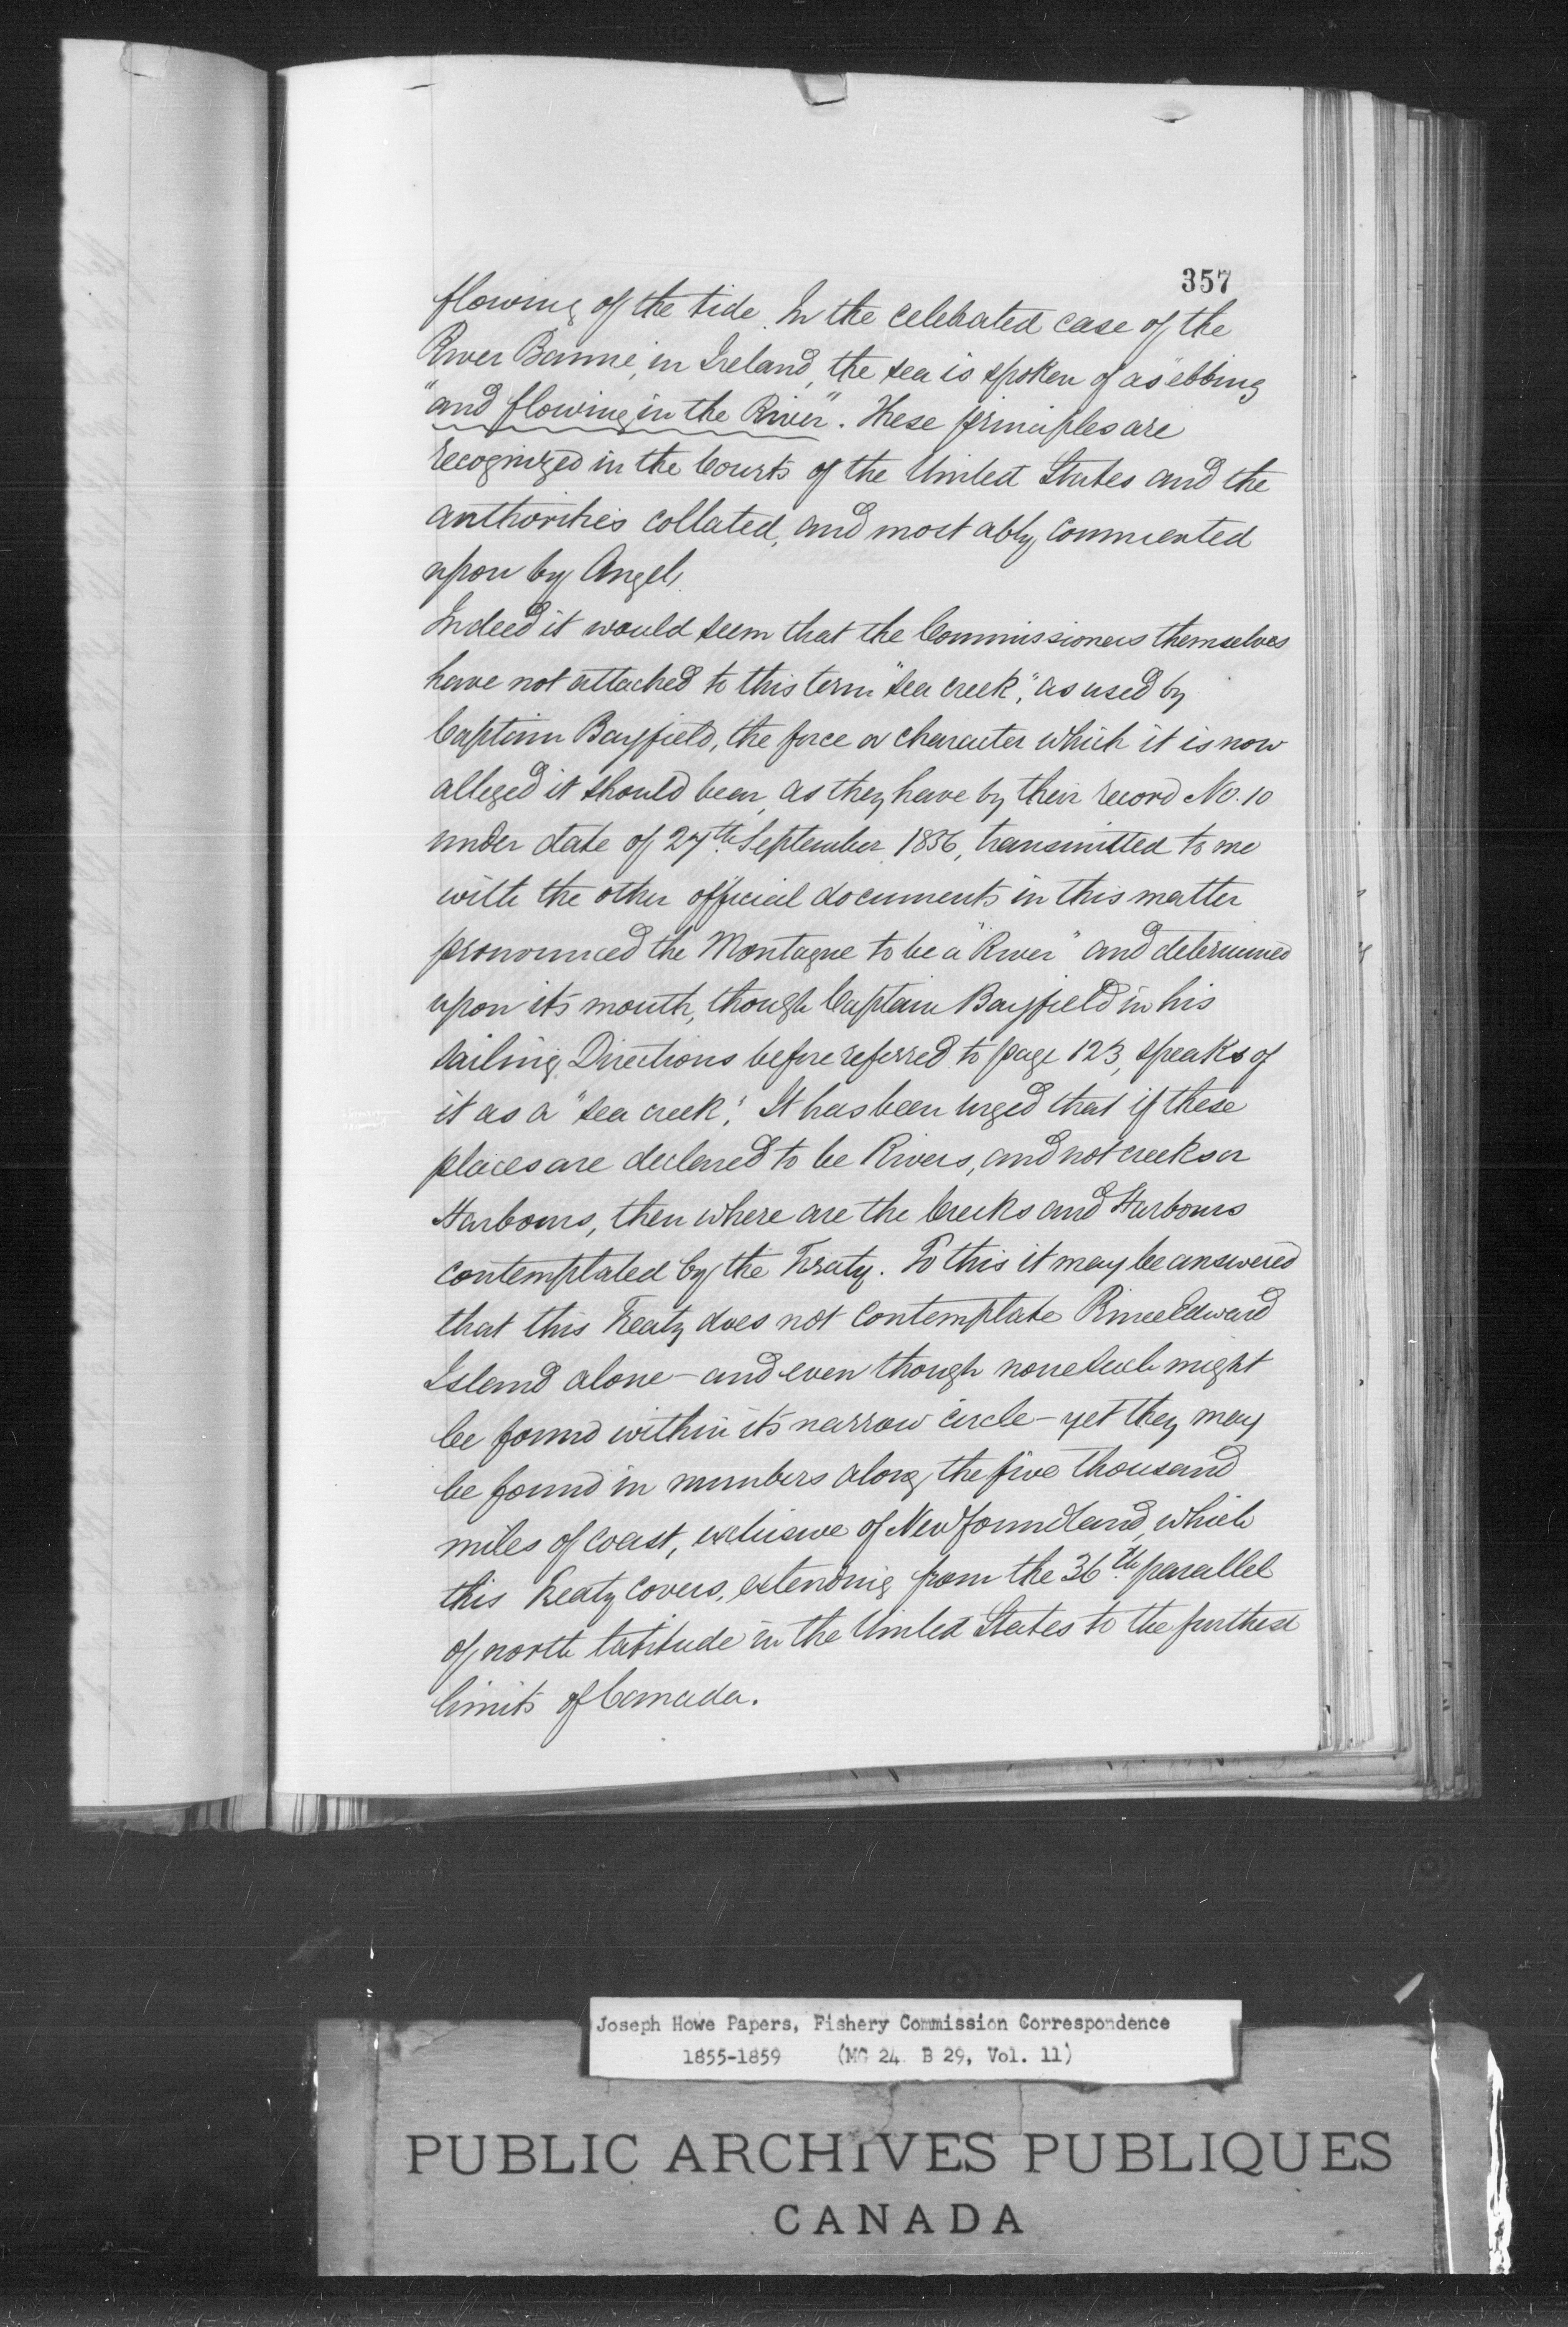 357
flowing of the tide. In the celebrated case of the
River Banne, in Ireland, the sea is spoken of as "ebbing
"and flowing in the River". These principles are
recognized in the Courts of the United States and the
authorities collated, and most ably commented
upon by Angel,
Indeed it would seem that the Commissioners themselves
have not attached to this term "sea creek", as used by
Captain Bayfield, the force or character which it is now
alleged it should bear, as they have by their record No. 10
under date of 27th. September 1856, transmitted to me
with the other official documents in this matter
pronounced the Montague to be a "River" and determined
upon its mouth, though Captain Bayfield in his
sailing Directions before referred to page 123, speaks of
it as a "sea creek". It has been urged that if these
places are declared to be Rivers, and not creeks or
Harbours, then where are the Creeks and Harbours
contemplated by the Treaty. To this it may be answered
that this Treaty does not contemplate Prince Edward
Island alone – and even though none such might
be found within its narrow circle – yet they may
be found in numbers along the five thousand
miles of coast, exclusive of Newfoundland, which
this Treaty covers, extending from the 36th. parallel
of north latitude in the United States to the furthest
limits of Canada.
Joseph Howe Papers, Fishery Commission Correspondence
1855-1859 (MG 24 B 29, Vol. 11)
PUBLIC ARCHIVES PUBLIQUES
CANADA